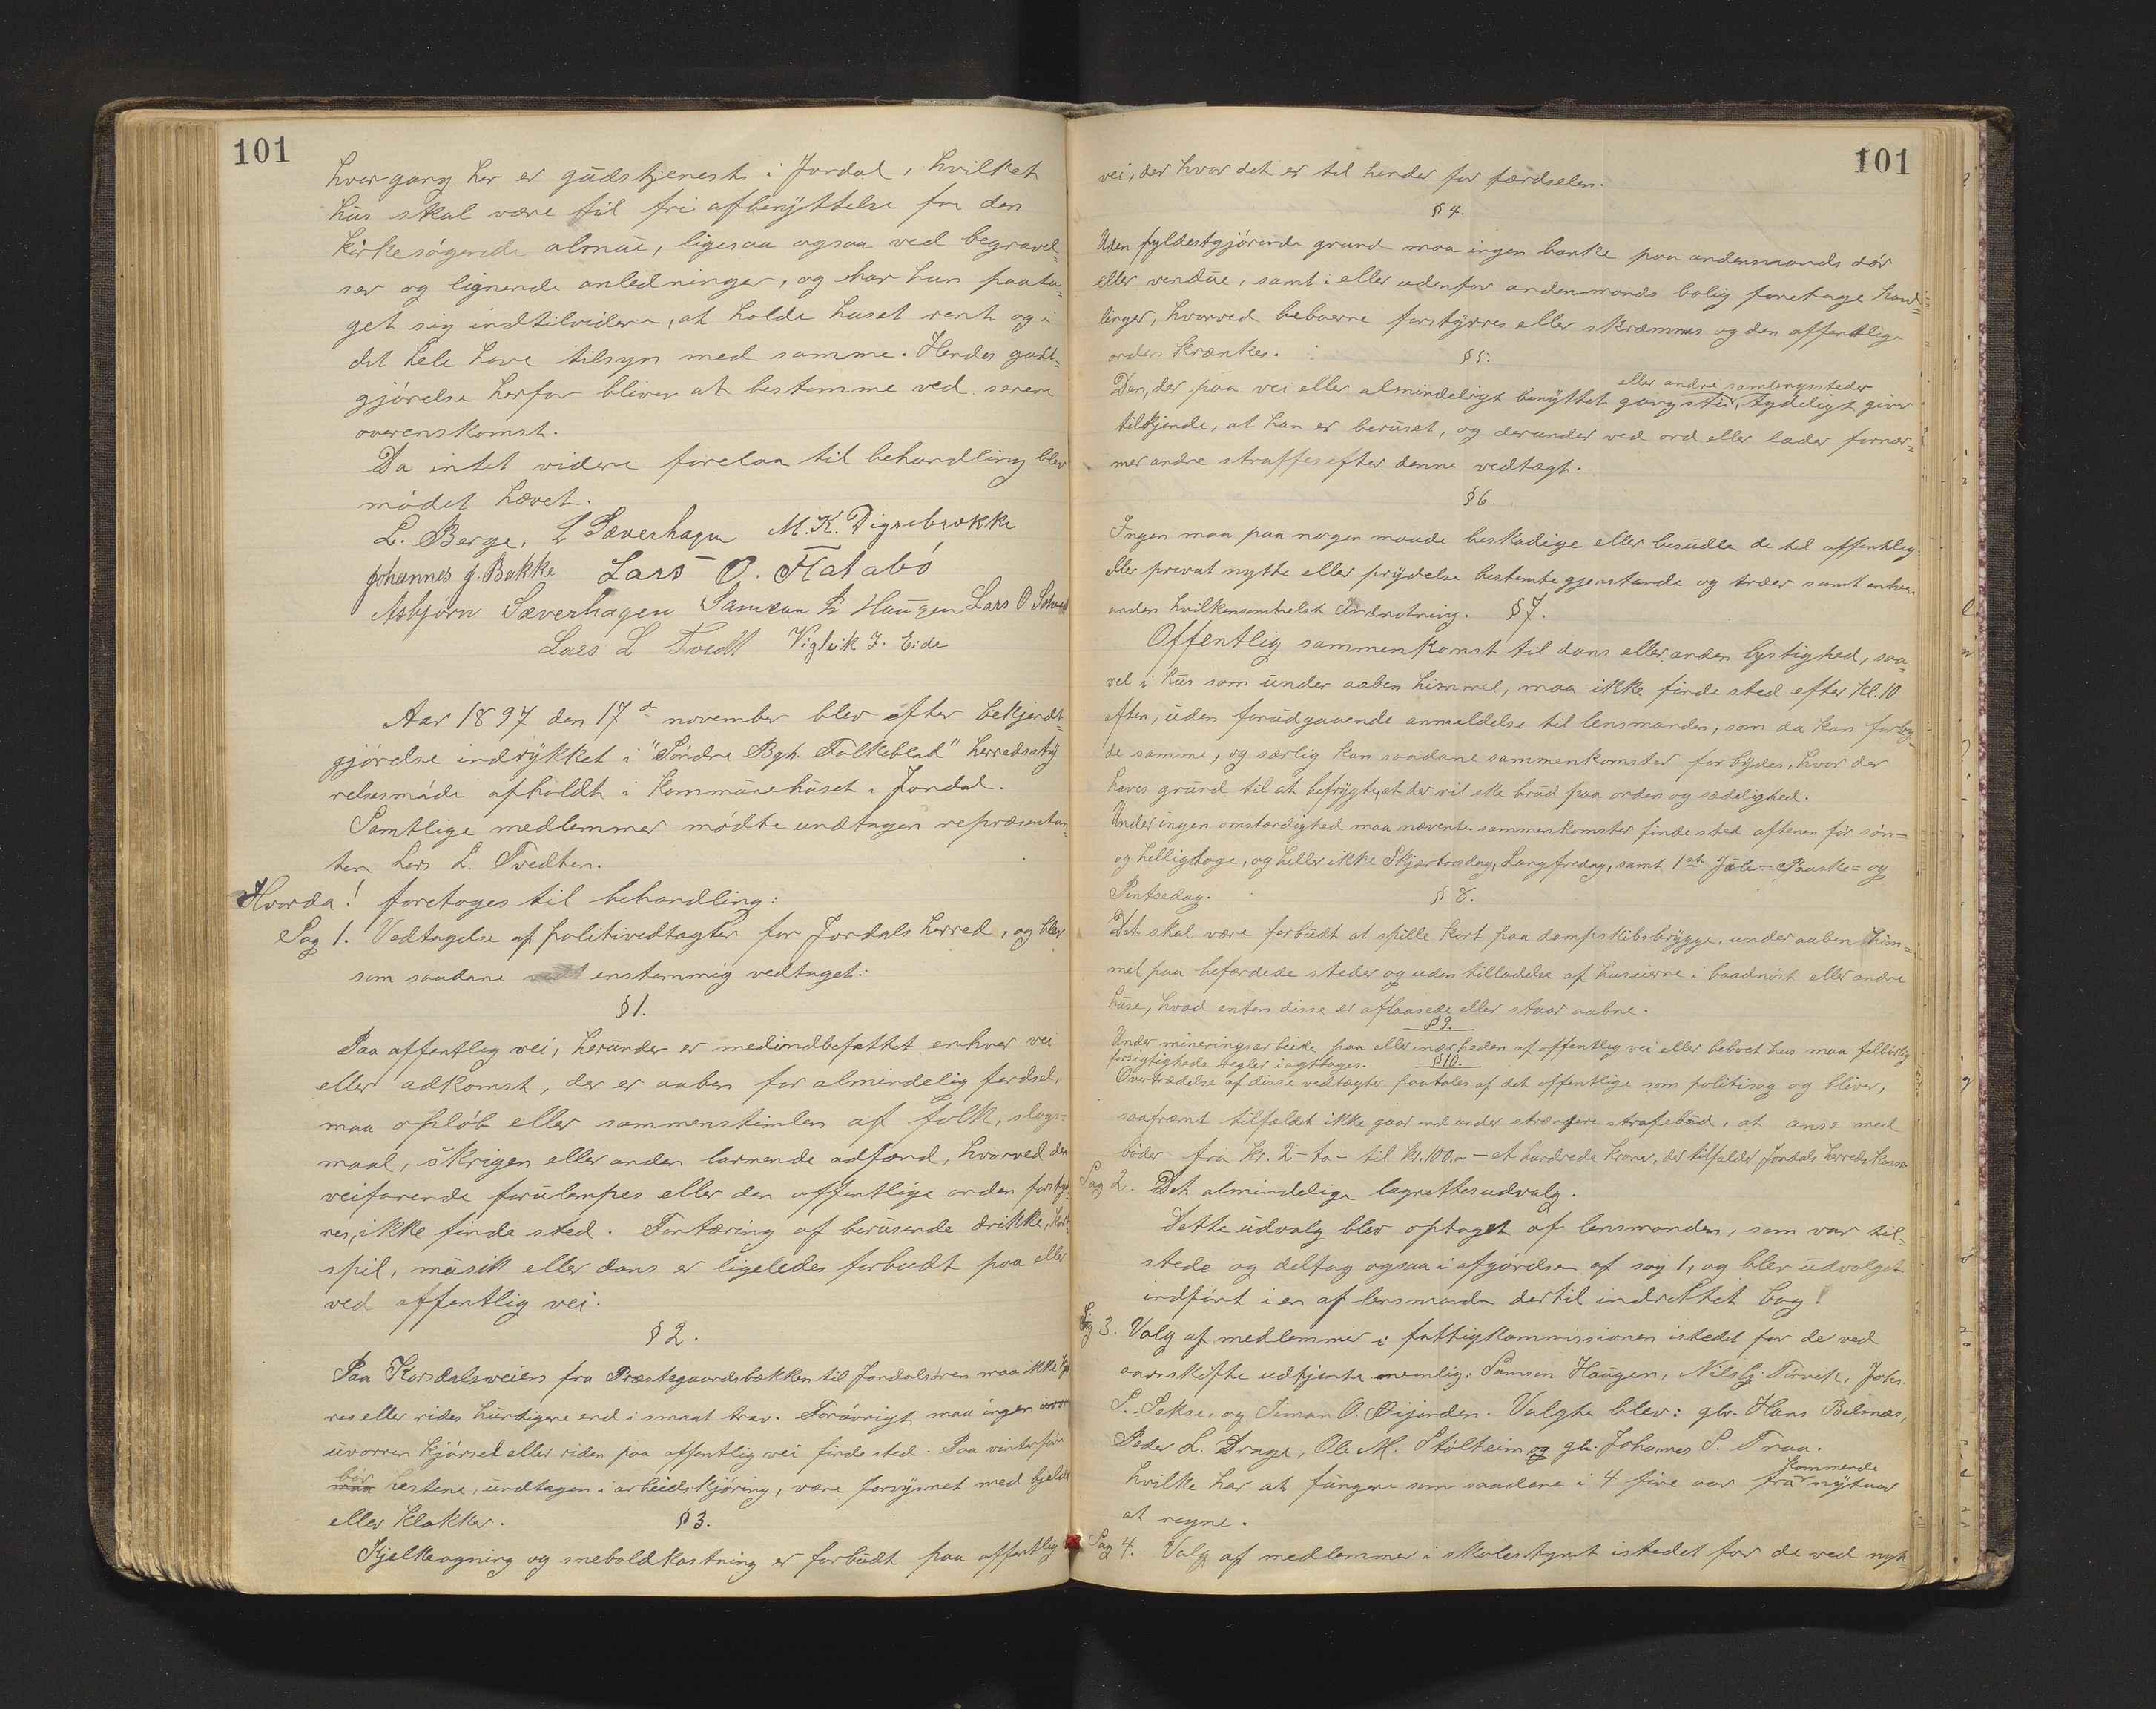 101
hver gang her er gudstjeneste i Jondal, hvilket
hus skal være til fri afbenyttelse for den
kirkesøgende almue, ligesaa ogsaa ved begravel=
ser og lignende anledninger, og har hun paata=
get sig indtilvidere, at holde huset rent og i
det hele have tilsyn med samme. Hendes godt=
gjørelse herfor bliver at bestemme ved senere
overenskomst.
Da intet videre forelaa til behandling blev
mødet hævet.
L. Berge. L Sæverhagen M. K. Digrebrække
Johannes J. Bakke Lars O. Flatabø
Asbjørn Sæverhagen Samson L Haugen Lars O
Lars L Tvedt Vigleik J. Eide
Aar 1897 den 17de november blev efter bekjendt=
gjørelse indrykket i "Søndre Bgh. Folkeblad" herredssty
relsesmøde afholdt i Kommunehuset i Jondal.
Samtlige medlemmer mødte undtagen repræsentan=
ten Lars L. Tvedten.
Hvorda! foretoges til behandling:
Sag 1. Vedtagelse af politivedtægter for Jondals herred, og blev
som saadane enstemmig vedtaget:
§ 1.
Paa offentlig vei, herunder er medindbefattet enhver vei
eller adkomst, der er aaben for almindelig færdsel,
maa opløb eller sammenstimlen af folk, slags=
maal, skrigen eller anden larmende adfærd, hvorved de
veifarende forulempes eller den offentlige orden forstyr=
res, ikke finde sted. Fortæring af berusende drikke, kort=
spil, musik eller dans er ligeledes forbudt paa eller
ved offentlig vei.
§ 2.
Paa Korsdalsveien fra Præstegaardsbækken til Jondalsøren maa ikke kjø
res eller rides hurtigere end i smaat trav. Forøvrigt maa ingen
uvorren kjørsel eller riden paa offentlig vei finde sted. Paa vinterføre
bør
maa hestene, undtagen i arbeidskjøring, være forsynet med bjelde
eller klokker. § 3.
Kjelkeagning og sneboldkastning er forbudt paa offentlig
101
vei, der hvor det er til hinder for færdselen.
§ 4.
Uden fyldestgjørende grund maa ingen banke paa andenmands dør
eller vindue, samt i eller udenfor andenmands bolig foretage hand=
linger, hvorved beboerne forstyrres eller skræmmes og den offentlige
orden krænkes. § 5.
eller andre samlingssteder
Den, der paa vei eller almindeligt benyttet gangsti, tydeligt giver
tilkjende, at han er beruset, og derunder ved ord eller lader fornær=
mer andre straffes efter denne vedtægt.
§ 6.
Ingen maa paa nogen maade beskadige eller besudle de til offentlig
eller privat nytte eller prydelse bestemte gjenstande og træer samt enhver
anden hvilkensomhelst indretning. § 7.
Offentlig sammenkomst til dans eller anden lystighed, saa=
vel i hus som under aaben himmel, maa ikke finde sted efter kl. 10
aften, uden forudgaaende anmeldelse til lensmanden, som da kan forby=
de samme, og særlig kan saadane sammenkomster forbydes, hvor der
haves grund til at befrygte, at der vil ske brud paa orden og sædelighed.
Under ingen omstændighed maa nævente sammenkomster finde sted aftenen før søn=
og helligdage, og heller ikke Skjærtorsdag, Langfredag, samt 1ste Jule= Paaske= og
Pintsedag. § 8.
Det skal være forbudt at spille kort paa dampskibsbrygge, under aaben him=
mel paa befærdede steder og uden tilladelse af huseierne i baadnøst eller andre
huse, hvad enten disse er aflaasede eller staar aabne.
§ 9.
Under mineringsarbeide paa eller i nærheden af offentlig vei eller beboet hus maa følbørlig
forsigtigheds regler iagttages. § 10.
Overtrædelse af disse vedtægter paatales af det offentlige som politisag og bliver,
saafræmt tilfældet ikke gaar ind under strængere strafebud, at anse med
bøder fra kr. 2 - to - til kr. 100,- - et hundrede kroner, der tilfalder Jondals herredskasse
Sag 2. Det almindelige lagrettesudvalg.
Dette udvalg blev optaget af lensmanden, som var til=
stede og deltog ogsaa i afgjørelsen af sag 1, og blev udvalget
indført i en af lensmanden dertil indrettet bog!
Sag 3. Valg af medlemmer i fattigkommissionen istedet for de ved
aarsskifte udtjente nemlig: Samson Haugen, Nils G. Tørvik, Johs.
S. Sekse, og Simon O. Øijorden. Valgte blev: gbr. Hans Belnæs,
Peder L. Drage, Ole M. Stølheim og gbr. Johannes S. Traa.
kommende
hvilke har at fungere som saadane i 4 fire aar fra nytaar
at regne.
Sag 4. Valg af medlemmer i skolestyret istedet for de ved nyt